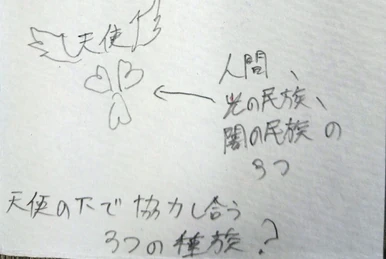 天使
人間、
光の民族、
闇の民族の
3つ
天使の下で協力し合う
3つの種族？